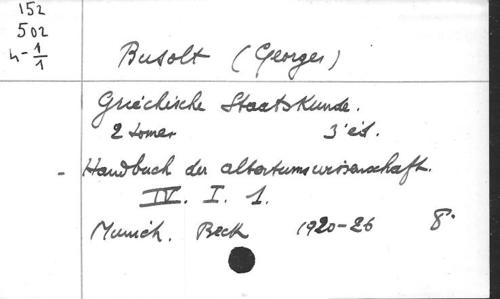 152
502
4-1/1
Busolt (Georges)
Griechische Staatskunde.
2 tomes 3'éd.
- Handbuch der altertumswissenschaft.
IV. I. 1.
Munich. Beck 1920-26 8°.